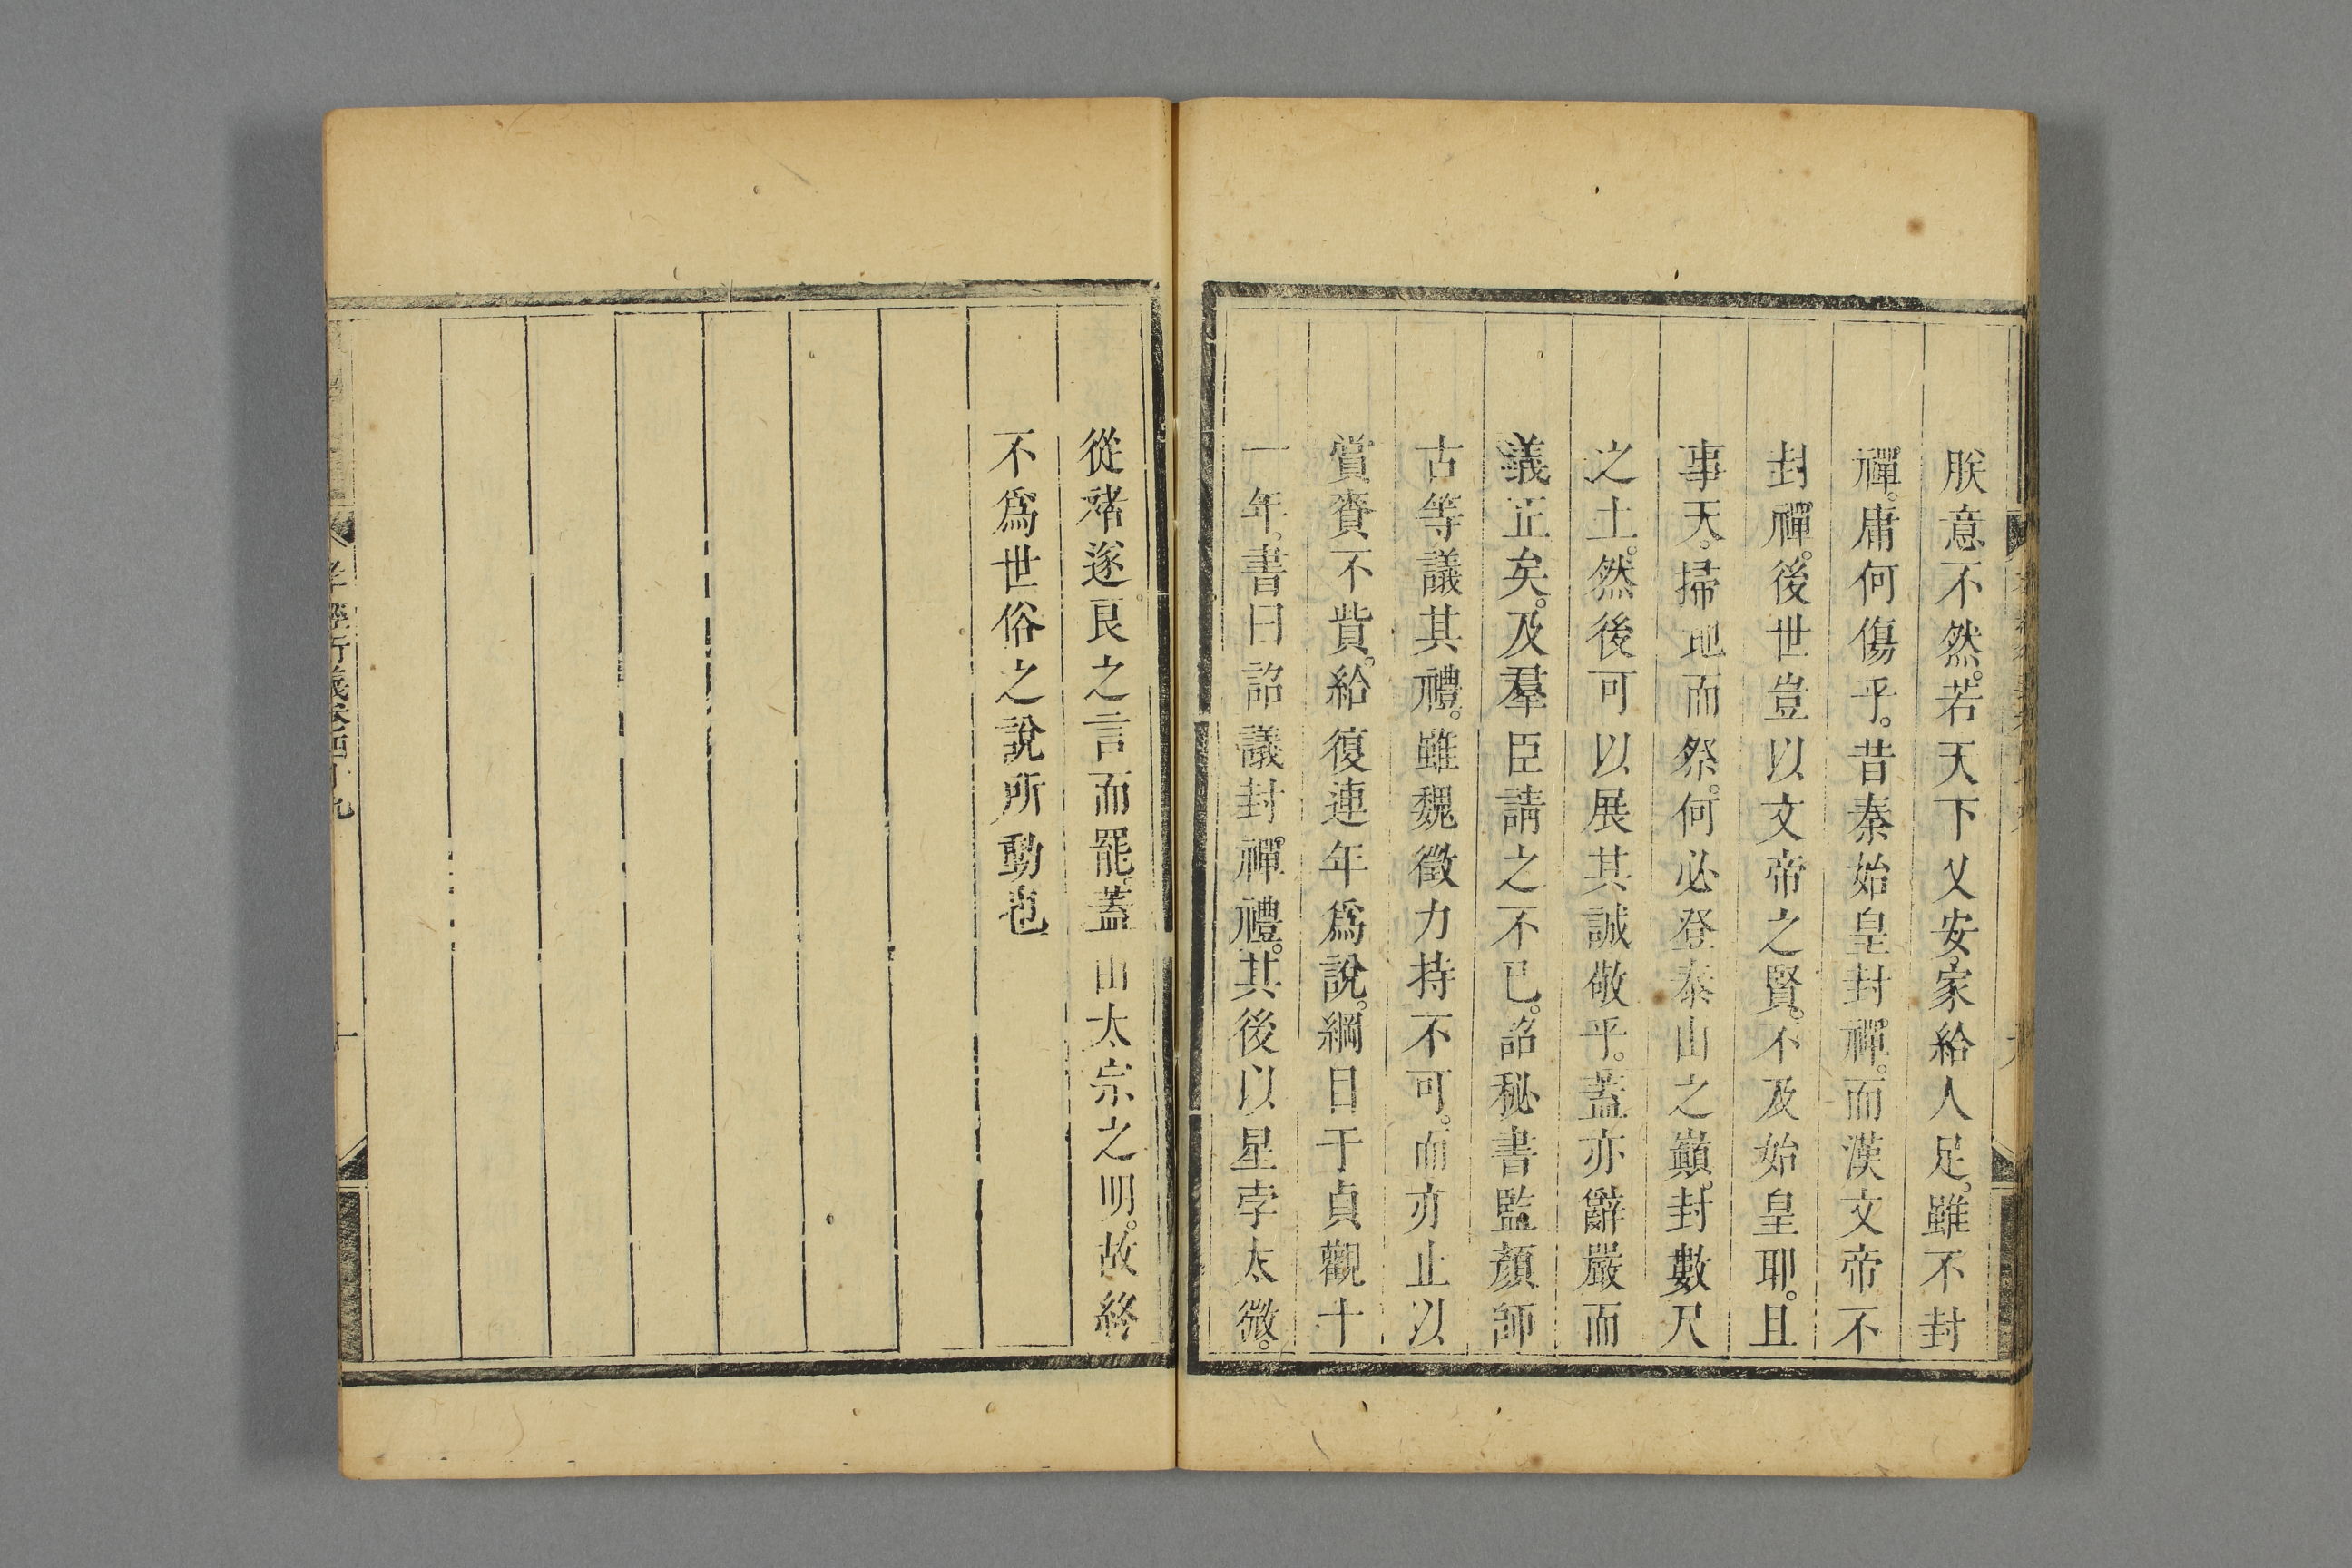 朕意不然。若天下乂安。家給人足。雖不封
禪。庸何傷乎。昔秦始皇封禪。而漢文帝不
封禪。後世豈以文帝之賢。不及始皇耶。且
事天。掃地而祭。何必登泰山之巔。封數尺
之土。然後可以展其誠敬乎。蓋亦辭嚴而
義正矣。及羣臣請之不已。詔秘書監顏師
古等議其禮。雖魏徵力持不可。而亦止以
賞賚不貲。給復連年爲說。綱目于貞觀十
一年。書曰詔議封禪禮。其後以星孛太微。
從褚遂良之言而罷。蓋由太宗之明。故終
不爲世俗之說所動也
孝經衍義卷四十九
十